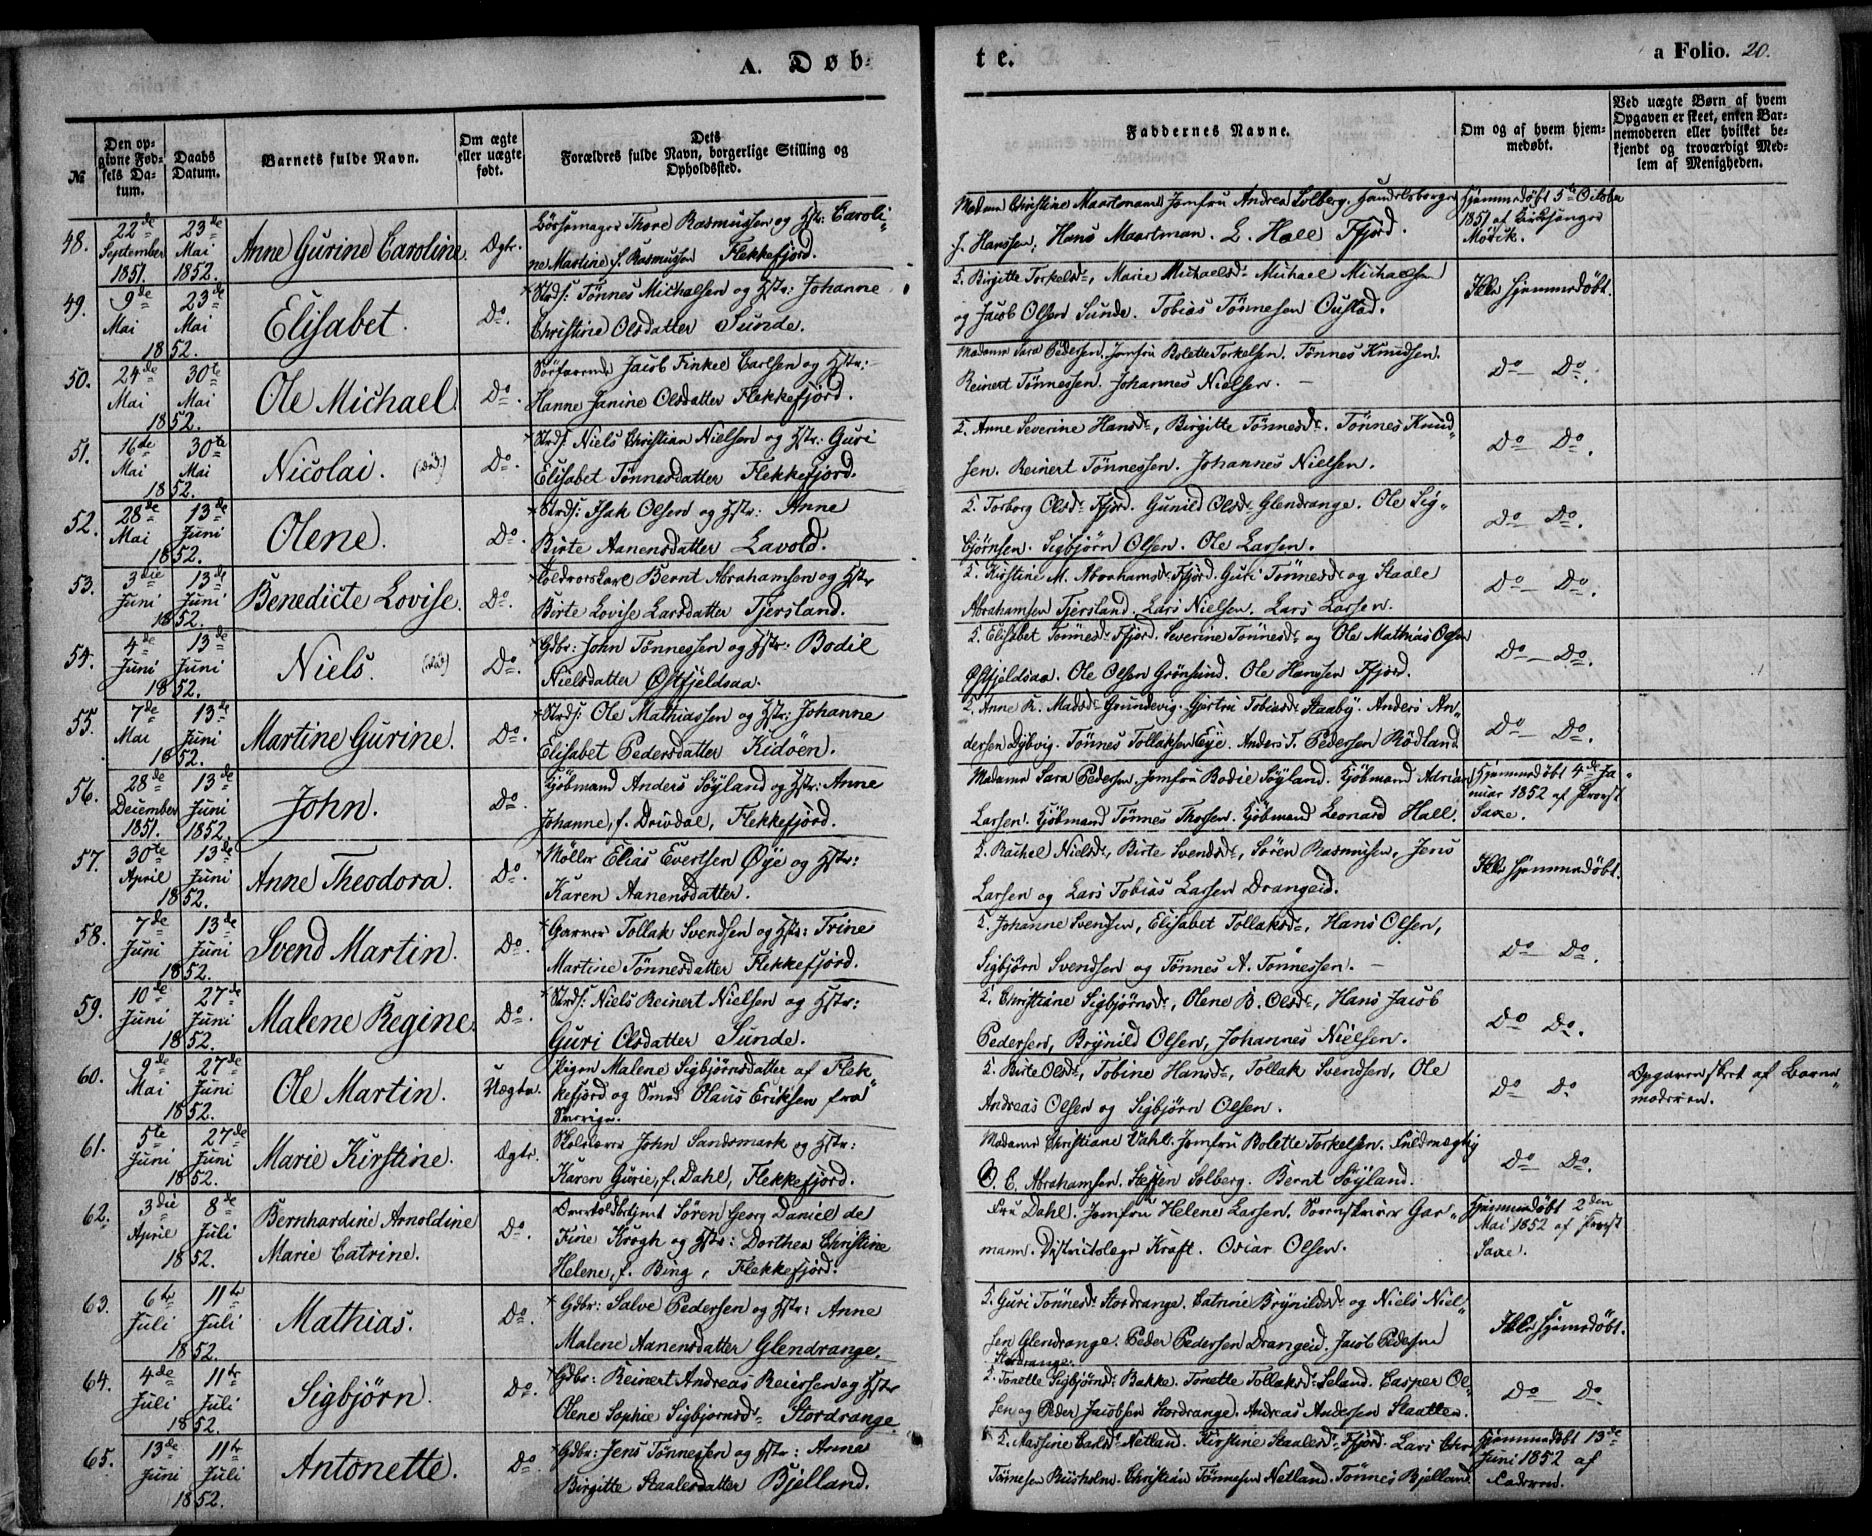 A. Døb-
te.
a Folio. 20.
№
Den op-
givne Fød-
sels Da-
tum.
Daabs
Datum.
Barnets fulde Navn.
Om ægte
eller uægte
født.
Dets
Forældres fulde Navn, borgerlige Stilling og
Opholdssted.
Faddernes Navne.
Om og af hvem hjem-
medøbt.
Ved uægte Børn af hvem
Opgaven er skeet, enten Bar-
nemoderen eller hvilket be-
kjendt og troværdigt Med-
lem af Menigheden.
48.
22de September 1851.
23de Mai 1852.
Anne Gurine Caroline.
Ægte.
Bøssemager Thore Rasmussen og Hstr: Caroli-
ne Martine f. Rasmussen Flekkefjord.
Madame Christine Maartmann Jomfru Andrea Solberg. Handelsborger
J. Hanssen; Hans Maartman. L. Hall Fjord.
Hjemmedøbt 5te October
1851 af
49.
9de Mai
23de Mai
1852.
Elisabet.
Do.
Strds: Tønnes Michalsen og Hstr: Johanne
Christine Olsdatter Sunde.
Birgitte Torkelsd., Marie Michaelsd. Michael Michaelsen
og Jacob Olsen Sunde. Tobias Tønnesen
Ikke hjemmedøbt.
50.
24de Mai
30te Mai
1852.
Ole Michael.
Do.
Søefarende Jacob Finkel Carlsen og Hstr:
Hanne Janine Olsdatter Flekkefjord.
Madame Sara Pedersen. Jomfru Bolette Torkelsen. Tønnes Knudsen.
Reinert Tønnessen. Johannes Nielsen. —
Do— Do.
51.
16de Mai
30te Mai
1852.
Nicolai. (død.)
Do.
Strds: Niels Christian Nielsen og Hstr: Guri
Elisabet Tønnesdatter Flekkefjord.
Anne Severine Hansd., Birgitte Tønnesd. Tønnes Knud-
sen. Reinert Tønnessen. Johannes Nielsen.
Do— Do.
52.
28de Mai
13de Juni
1852.
Olene.
Do.
Strds: Isak Olsen og Hstr: Anne
Birte Aanensdatter Lavold.
Torborg Olsd. Fjord. Gunild Olsd. Glendrange. Ole Sig-
bjørnsen. Sigbjørn Olsen. Ole Larsen.
Do— Do.
53.
3die Juni
13de Juni
1852.
Benedicte Lovise.
Do.
Bernt Abrahamsen og Hstr
Birte Lovise Larsdatter Tjersland.
Kirstine M. Abrahamsd. Fjord. Guri Tønnesd. og Staale
Abrahamsen Tjersland. Lars Nielsen. Lars Larsen.
Do— Do.
54.
4de Juni
13de Juni
1852.
Niels. (død)
Do.
Gdbr: John Tønnessen og Hstr: Bodil
Nielsdatter Østfjeldsaa.
Elisabet Tønnesd. Fjord. Severine Tønnesd. og Ole Mathias Olsen
Østfjeldsaa. Ole Olsen Grønsund. Ole Hanssen Fjord.
Do— Do.
55.
7de Mai
13de Juni
1852.
Martine Gurine.
Do.
Strds: Ole Mathiassen og Hstr: Johanne
Elisabet Pedersdatter Kidøen.
Anne K. Madsd. Grundevig. Gjertru Tobiasd. Staaby. Anders An-
dersen Dybvig. Tønnes Tollaksen Eye. Anders T. Pedersen Rødland
Do— Do.
56.
28de December 1851.
13de Juni 1852.
John.
Do.
Kjøbmand Anders Søyland og Hstr: Anne
Johanne, f. Drivdal, Flekkefjord.
Madame Sara Pedersen. Jomfru Bodie Søyland. Kjøbmand Adrian
Larsen. Kjøbmand Tønnes Thorsen. Kjøbmand Leonard Hall.
Hjemmedøbt 4de Ja-
nuar 1852 af Provst
Saxe.
57.
30te April
13de Juni
1852.
Anne Theodora.
Do.
Møller Elias Evertsen Øye og Hstr:
Karen Aanensdatter.
Rachel Nielsd., Birte Svendsd., Søren Rasmusen, Jens
Larsen og Lars Tobias Larsen Drangeid.
Ikke hjemmedøbt.
58.
7de Juni
13de Juni
1852.
Svend Martin.
Do.
Garver Tollak Svendsen og Hstr: Trine
Martine Tønnesdatter Flekkefjord.
Johanne Svendsen, Elisabet Tollaksd., Hans Olsen,
Sigbjørn Svendsen og Tønnes A. Tønnessen. —
Do— Do.
59.
10de Juni
27de Juni
1852.
Malene Regine.
Do.
Strds: Niels Reinert Nielsen og Hstr:
Guri Olsdatter Sunde.
Christiane Sigbjørnsd., Olene B. Olsd., Hans Jacob
Pedersen, Brynild Olsen, Johannes Nielsen.
Do Do.
60.
9de Mai
27de Juni
1852.
Ole Martin.
Uægte.
Pigen Malene Sigbjørnsdatter af Flek-
kefjord og Olaus Eriksen fra
Sverige.
Birte Olsd., Tobine Hansd., Tollak Svendsen, Ole
Andreas Olsen og Sigbjørn Olsen.
Do Do.
Opgaven skeet af Barne-
moderen.
61.
5te Juni
27de Juni
1852.
Marie Kirstine.
Ægte.
Skolelærer John Sandsmark og Hstr:
Karen Gurie, f. Dahl, Flekkefjord.
Madame Christiane Vahl. Jomfru Bolette Torkelsen. Fuldmægtig
O. E. Abrahamsen. Steffen Solberg. Bernt Søyland.
Do Do.
62.
3die April
8de Juli
1852.
Bernhardine Arnoldine
Marie Catrine.
Do.
Overtoldbetjent Søren Georg Daniel de
Fine Krogh og Hstr: Dorthea Christine
Helene, f. Bing, Flekkefjord.
Fru Dahl. Jomfru Helene Larsen. Sorenskriver Gar-
mann. Districtslæge Kraft. Oscar Olsen.
Hjemmedøbt 2den
Mai 1852 af Provst
Saxe.
63.
6te Juli
11te Juli
1852.
Mathias.
Do.
Gdbr: Salve Pedersen og Hstr: Anne
Malene Aanensdatter Glendrange.
Guri Tønnesd. Stordrange. Catrine Brynildsd. og Niels Niel-
sen Glendrange. Peder Pedersen Drangeid. Jacob Pedersen
Stordrange.
Ikke hjemedøbt.
64.
4de Juli
11te Juli
1852.
Sigbjørn.
Do.
Gdbr: Reinert Andreas Reiersen og Hstr
Olene Sophie Sigbjørnsd. Stordrange
Tonette Sigbjørnsd. Bakke. Tonette Tollaksd. Seland. Casper Ol-
sen og Peder Jacobsen Stordrange. Andreas Andersen Slaatten.
Do Do.
65.
13de Juni
11te Juli
1852.
Antonette.
Do.
Gdbr: Jens Tønnessen og Hstr: Anne
Birgitte Staalesdatter Bjelland.
Massine Carlsd. Netland. Kirstine Staalesd. Fjord. Lars Chr.
Tønnesen Busholm. Christian Tønnesen Netland. Tønnes Bjelland.
Hjemmedøbt 13de
Juni 1852 af
Faderen.